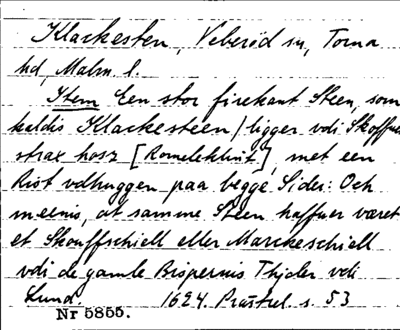 Klackesten, Veberöd sn, Torna
hd, Malm. l.
Item Een stor firekant Steen, som
kaldis Klackesteen / ligger vdi Skoffuen
strax hosz [Romeleklint], met een
Rist vdhuggen paa begge Sider: Och
meenis, at samme Steen haffuer været
et Skouffschiell eller Marckeschiell
vdi de gamle Bispernis Thjder vdi
Lund. 1624. Præstrel. s. 53
Nr 5855.